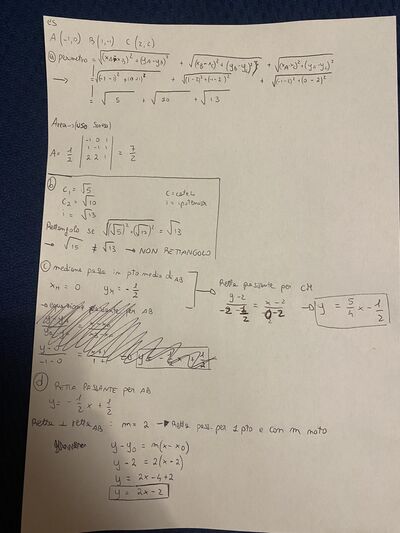 es
A (-1,0) B(1,-1) C (2,2)
a) perimetro = √(xA-xB)²+(yA-yB)² + √(xB-xC)²+(yB-yC)² + √(xA-xC)²+(yA-yC)²
→ = √(-1-1)²+(0+1)² + √(1-2)²+(-1-2)² + √(-1-2)²+(0-2)²
= √5 + √10 + √13
Area → (uso Sarrus)
A = 1/2 | -1 0 1 | 1 -1 1 | 2 2 1 | = 7/2
b) C₁ = √5 C = cateto
C₂ = √10 i = ipotenusa
i = √13
Rettangolo se √(√5)²+(√10)² = √13
→ √15 ≠ √13 → NON RETTANGOLO
c) mediana passa in pto medio di AB
xM = 0 yM = -1/2
→ Retta passante per CM
y-2 / -2-1/2 = x-2 / 0-2 → y = 5/4 x - 1/2
d) RETTA PASSANTE PER AB
y = -1/2 x + 1/2
Retta ⊥ rettaAB : m = 2 → Retta pass. per 1 pto e con m noto
y-y₀ = m(x-x₀)
y-2 = 2(x-2)
y = 2x-4+2
y = 2x-2